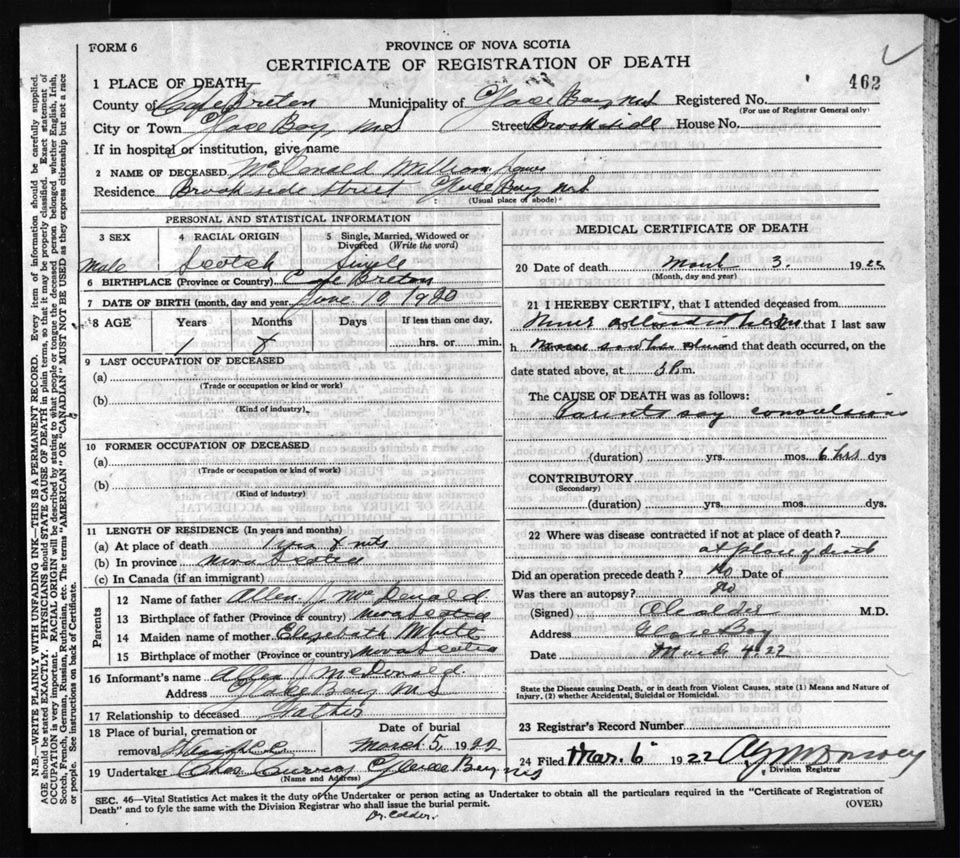 FORM 6
PROVINCE OF NOVA SCOTIA
CERTIFICATE OF REGISTRATION OF DEATH
462
1 PLACE OF DEATH
County of Cape Breton Municipality of Glace Bay NS Registered No.
(For use of Registrar General only)
City or Town Glace Bay NS Street Brookside House No.
If in hospital or institution, give name
2 NAME OF DECEASED McDonald William
Residence Brookside Street Glace Bay NS
(Usual place of abode)
PERSONAL AND STATISTICAL INFORMATION
3 SEX 4 RACIAL ORIGIN 5 Single, Married, Widowed or Divorced (Write the word)
Male Scotch Single
6 BIRTHPLACE (Province or Country) Cape Breton
7 DATE OF BIRTH (month, day and year) June 10 1920
8 AGE Years Months Days If less than one day,
1 8 hrs. or min.
9 LAST OCCUPATION OF DECEASED
(a)
(Trade or occupation or kind or work)
(b)
(Kind of industry)
10 FORMER OCCUPATION OF DECEASED
(a)
(Trade or occupation or kind of work)
(b)
(Kind of industry)
11 LENGTH OF RESIDENCE (In years and months)
(a) At place of death 1 yrs 8 mts
(b) In province Nova Scotia
(c) In Canada (if an immigrant)
Parents
12 Name of father Allen J. McDonald
13 Birthplace of father (Province or country) Nova Scotia
14 Maiden name of mother Elizabeth
15 Birthplace of mother (Province or country) Nova Scotia
16 Informant's name Allen J McDonald
Address Glace Bay NS
17 Relationship to deceased Father
18 Place of burial, cremation or removal Date of burial
March 5, 1922
19 Undertaker Chas Curry Glace Bay NS
(Name and Address)
MEDICAL CERTIFICATE OF DEATH
20 Date of death March 3. 1922
(Month, day and year)
21 I HEREBY CERTIFY, that I attended deceased from
that I last saw
h and that death occurred, on the
date stated above, at 3 P.m.
The CAUSE OF DEATH was as follows:
Parents say convulsions
(duration) yrs. mos. 6 hrs dys
CONTRIBUTORY
(Secondary)
(duration) yrs. mos. dys.
22 Where was disease contracted if not at place of death?
at place of death
Did an operation precede death? No Date of
Was there an autopsy? No
(Signed) M.D.
Address Glace Bay
Date March 4 22
State the Disease causing Death, or in death from Violent Causes, state (1) Means and Nature of Injury, (2) whether Accidental, Suicidal or Homicidal.
23 Registrar's Record Number
24 Filed Mar. 6 1922
Division Registrar
SEC. 46—Vital Statistics Act makes it the duty of the Undertaker or person acting as Undertaker to obtain all the particulars required in the "Certificate of Registration of
Death" and to fyle the same with the Division Registrar who shall issue the burial permit. (OVER)
Dr. Calder.
N.B.—WRITE PLAINLY WITH UNFADING INK—THIS IS A PERMANENT RECORD. Every item of information should be carefully supplied.
AGE should be stated EXACTLY. PHYSICIANS should STATE CAUSE OF DEATH in plain terms, so that it may be properly classified. Exact statement of
OCCUPATION is very important. RACIAL ORIGIN will be described by stating to what people or tongue the deceased person belonged whether English, Irish,
Scotch, French, German, Russian, Ruthenian, etc. The terms "AMERICAN" OR "CANADIAN" MUST NOT BE USED as they express citizenship but not a race
or people. See instructions on back of Certificate.